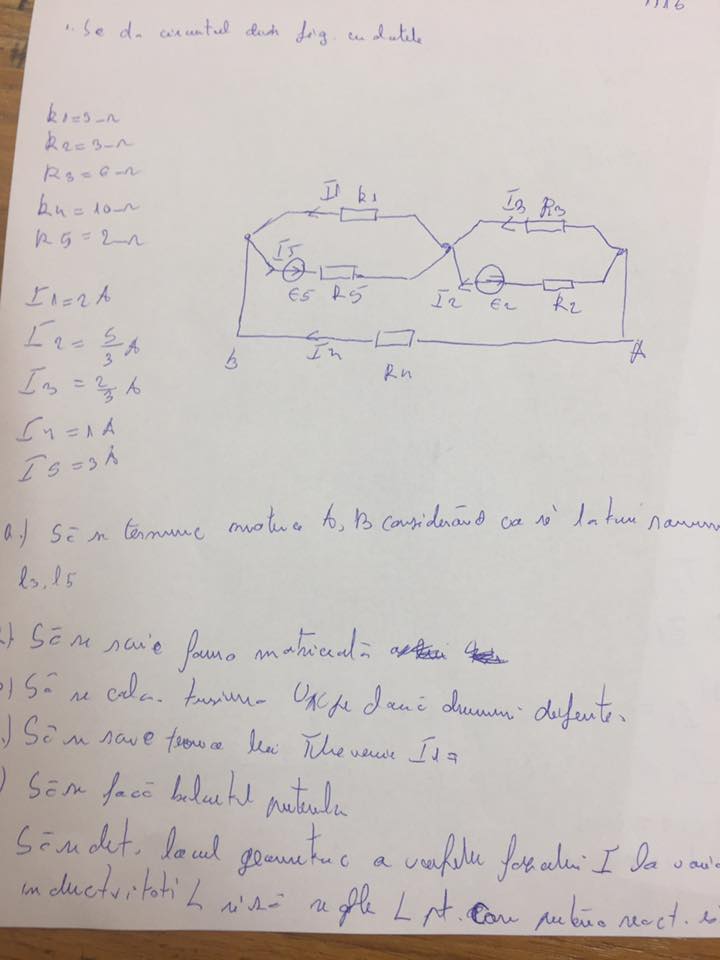 1. Se dă circuitul din fig. cu datele
R1=3Ω
R2=3Ω
R3=6Ω
R4=10Ω
R5=2Ω
I1=2A
I2=5/3A
I3=2/3A
I4=1A
I5=3A
I1 R1
I3 R3
I5
E5 R5
I2 E2 R2
B I4 A
R4
a.) Să se matricea A, B considerând ca
l3, l5
Să se scrie forma matriceală
Să se calc. tensiunea pe două drumuri diferite.
Să se scrie lui Thevenin I1=
Să se facă bilanțul
Să se det. locul geometric a fazorului I la
inductivității L și să se L pt. care react.